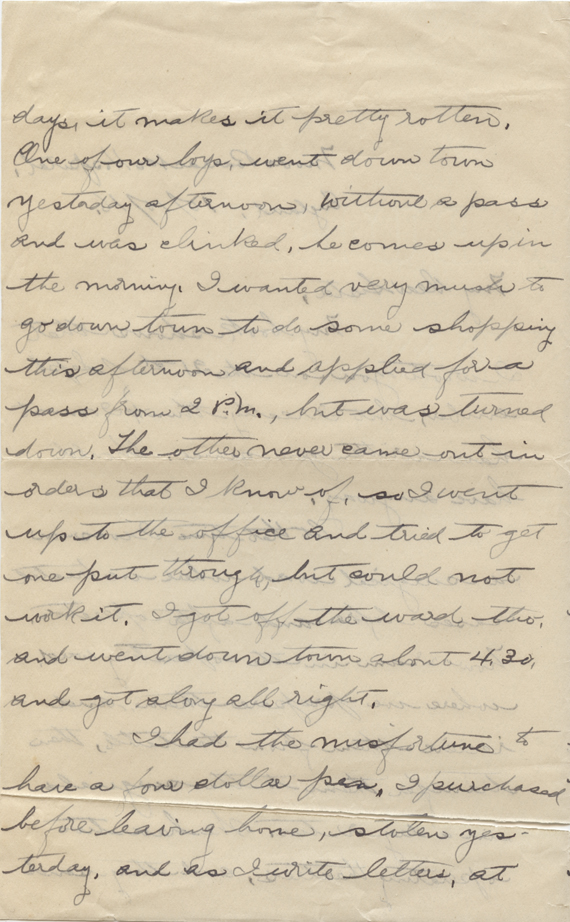 days, it makes it pretty rotten.
One of our boys, went down town
yesterday afternoon, without a pass
and was clinked, he comes up in
the morning. I wanted very much to
go down town to do some shopping
this afternoon and applied for a
pass from 2 P.M., but was turned
down. The other never came out in
orders that I know of, so I went
up to the office and tried to get
one put through, but could not
work it. I got off the ward tho.
and went down town about 4.30.
and got along all right.
I had the misfortune to
have a four dollar pen, I purchased
before leaving home, stolen yes-
terday, and as I write letters, at